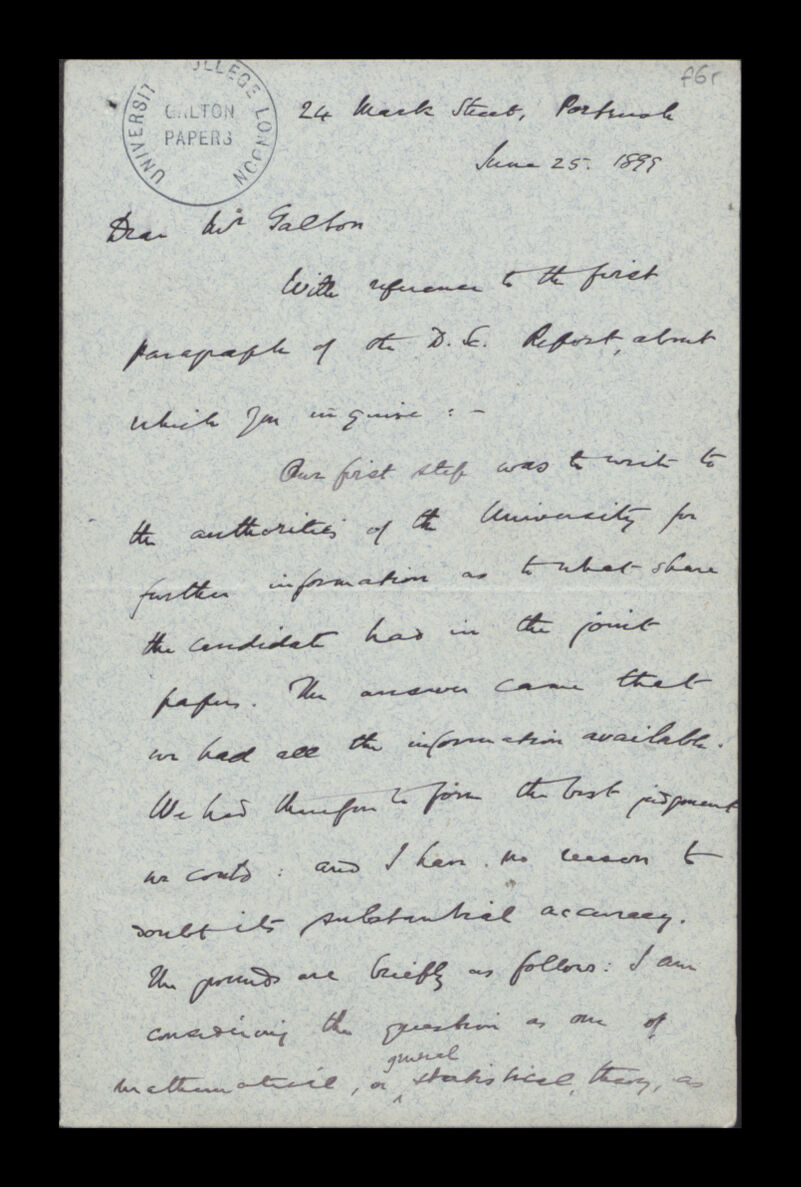 f6r
UNIVERSITY COLLEGE LONDON
GALTON
PAPERS
24 Mark Street, Portrush
June 25. 1899
Dear Mr Galton
With reference to the first
paragraph of the D.Sc. Report, about
which you inquire : -
Our first step was to write to
the authorities of the University for
further information as to what share
the candidate had in the joint
papers. The answer came that
we had all the information available.
We had therefore to form the best judgment
we could : and I have no reason to
doubt its substantial accuracy.
The grounds are briefly as follows : I am
considering the question as one of
general
mathematical, or statistical, theory, as